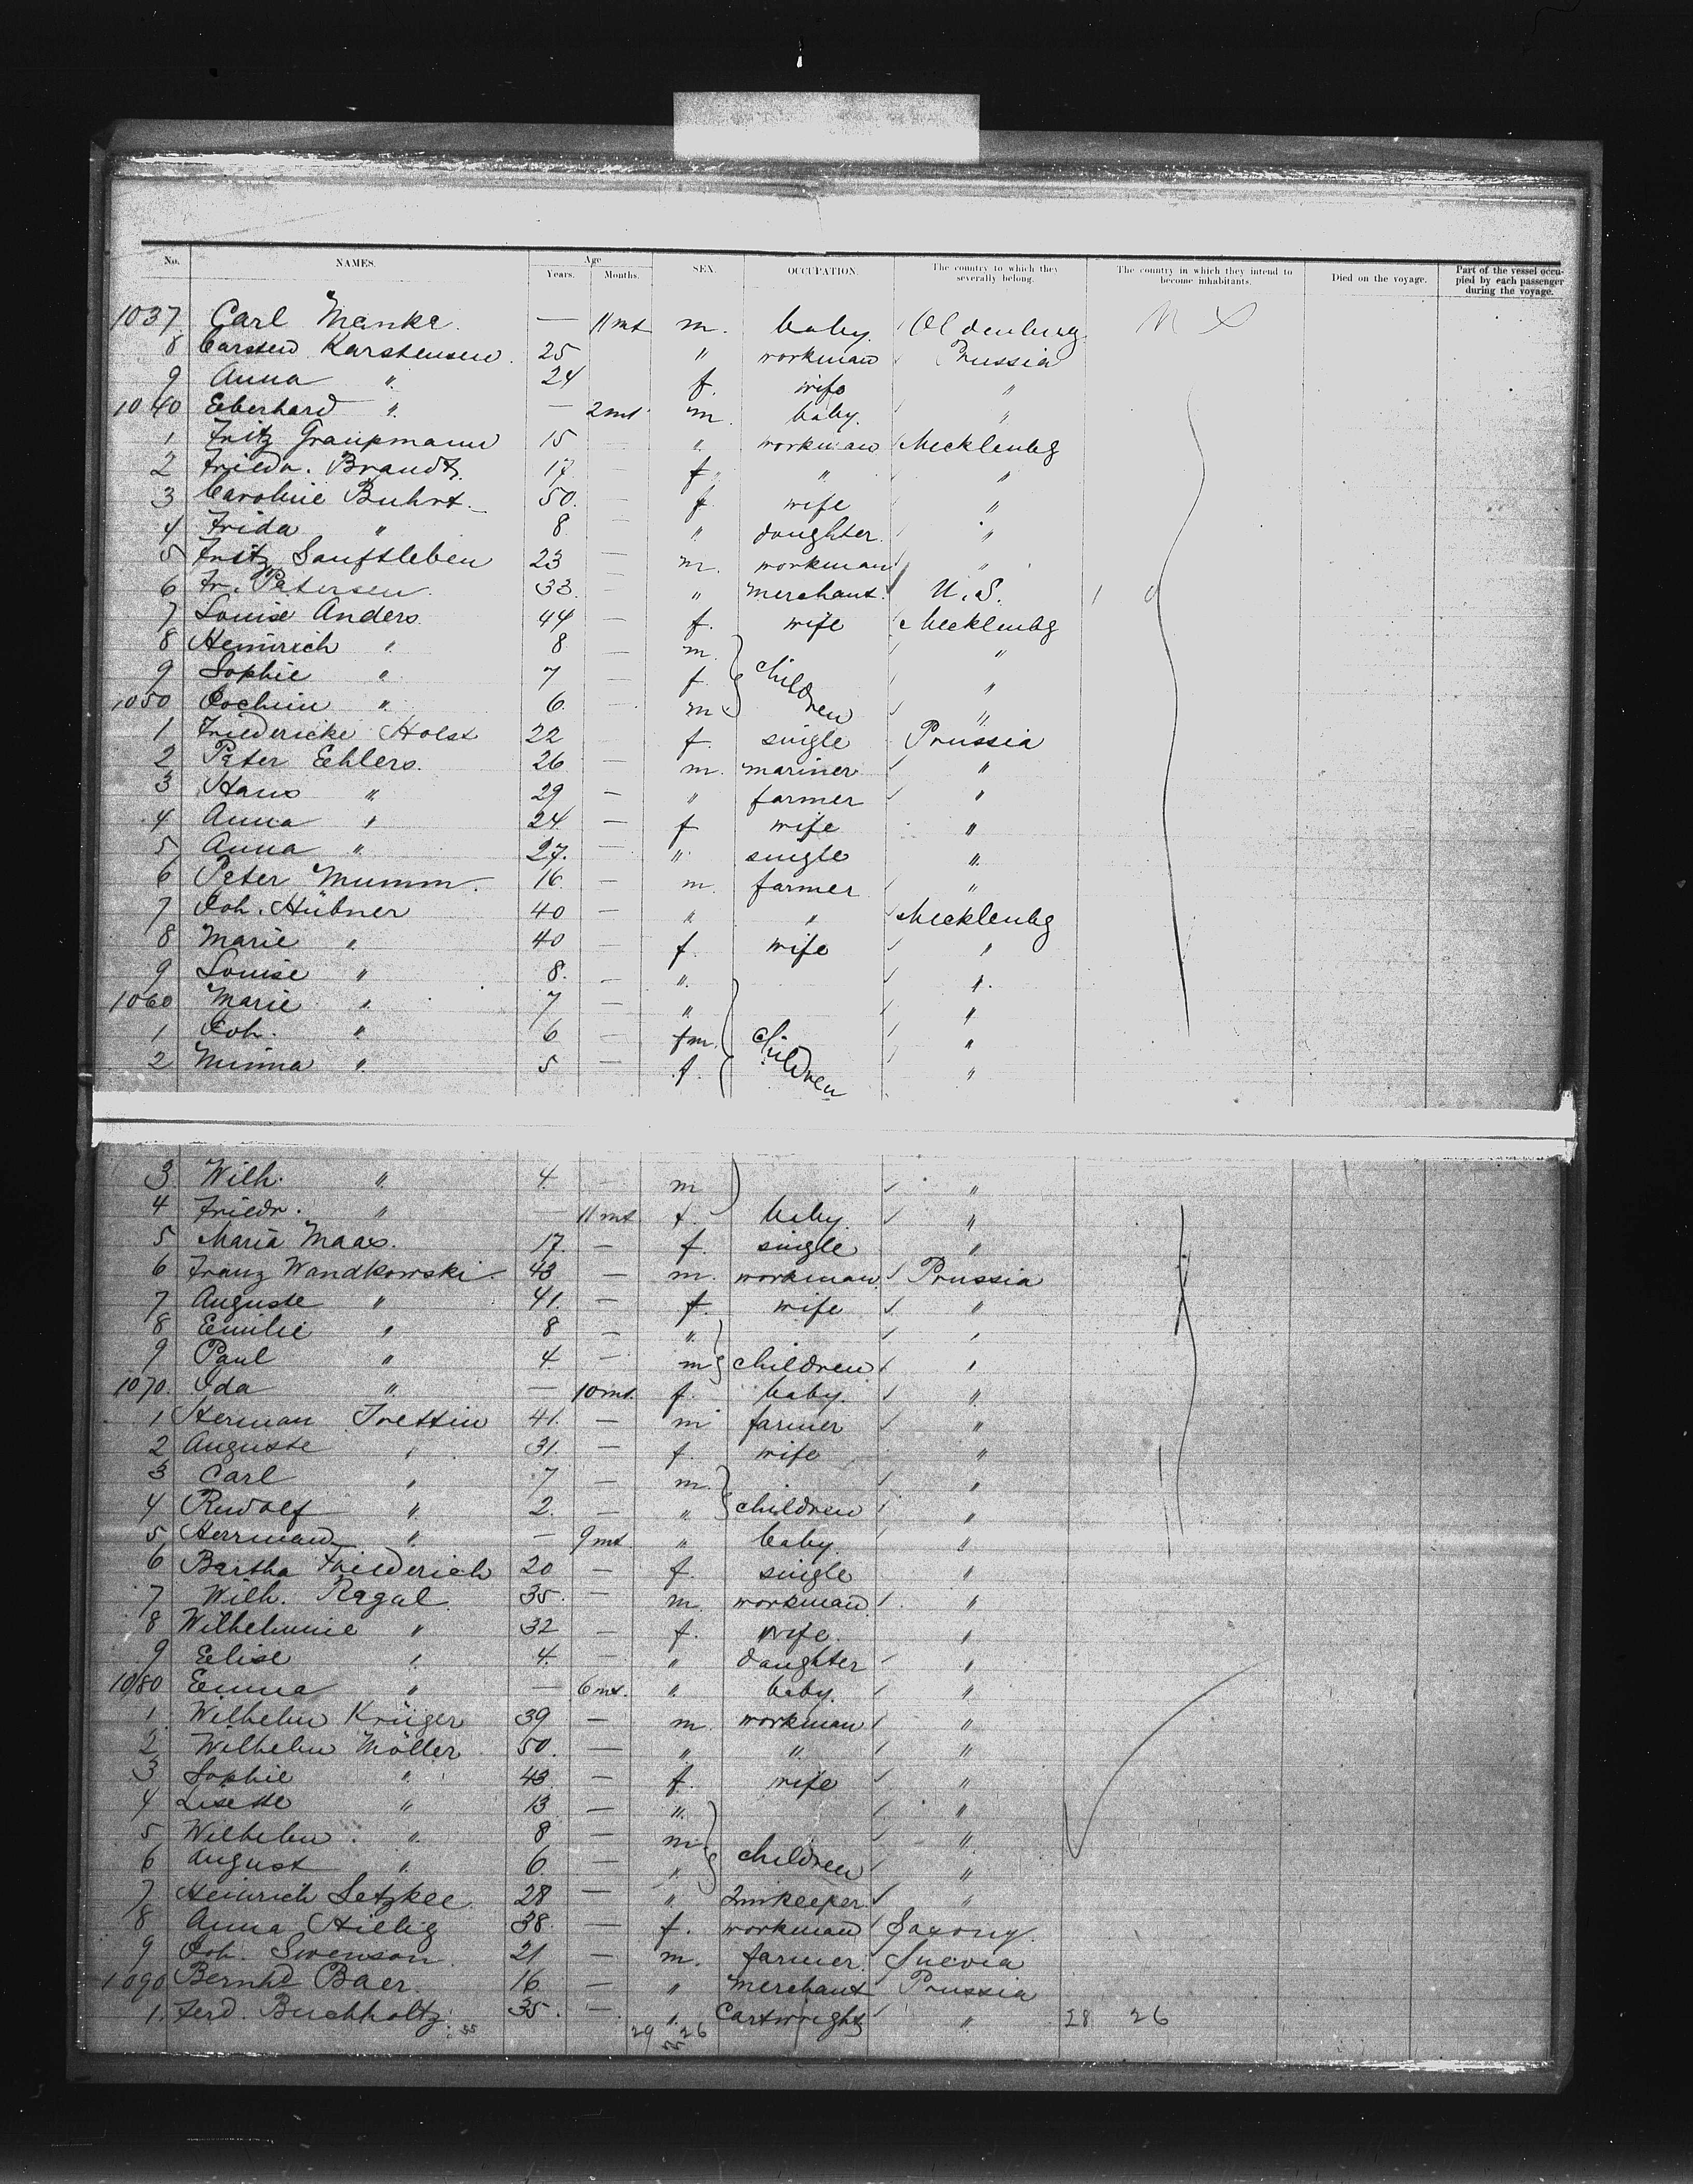 No. NAMES. Age Years. Months. SEX. OCCUPATION. The country to which they severally belong. The country in which they intend to become inhabitants. Died on the voyage. Part of the vessel occupied by each passenger during the voyage.
1037 Carl Menke. — 11 mt m. baby. Oldenburg
8 Carsten Karstensen. 25 " workman Prussia
9 Anna " 24 f. wife "
1040 Eberhard " — 2 mt m. baby. "
1 Fritz Graupmann 15 — " workman Mecklenbg
2 Friedr. Brandt 17 — f. " "
3 Caroline Buhrt. 50. — f. wife "
4 Frida " 8 — " daughter. "
5 Fritz Sanftleben 23 — m. workman "
6 Fr. Petersen. 33. — " merchant. U.S.
7 Louise Anders. 44 — f. wife Mecklenbg
8 Heinrich " 8 — m. "
9 Sophie " 7 — f. children "
1050 Jochim " 6. — m. "
1 Friedericke Holst 22 — f. single Prussia
2 Peter Ehlers. 26 — m. mariner "
3 Hans " 29 — " farmer "
4 Anna " 24 — f wife "
5 Anna " 27. — " single "
6 Peter Mumm. 16. — m. farmer "
7 Joh. Hübner 40 — " " Mecklenbg
8 Marie " 40 — f. wife "
9 Louise " 8. — " "
1060 Marie " 7 — " "
1 Joh. " 6 — m. children "
2 Minna " 5 — f. "
3 Wilh. " 4. — m "
4 Friedr. " — 11 mt f. baby. "
5 Maria Maas. 17. — f. single "
6 Franz Wandkowski. 43 — m. workman Prussia
7 Auguste " 41. — f. wife "
8 Emilie " 8 — " "
9 Paul " 4. — m children "
1070. Ida " — 10 mt. f. baby. "
1 Herman Trettin 41. — m farmer "
2 Auguste " 31. — f. wife "
3 Carl " 7 — m. "
4 Rudolf " 2. — " children "
5 Herrman " — 9 mt. " baby. "
6 Bertha Friederich 20 — f. single "
7 Wilh. Regal 35. — m. workman. "
8 Wilhelmine " 32 — f. wife. "
9 Elise " 4. — " daughter "
1080 Emma " — 6 mt. " baby. "
1 Wilhelm Krüger 39 — m. workman "
2 Wilhelm Möller 50. — " " "
3 Sophie " 43. — f. wife "
4 Lisette " 13 — " "
5 Wilhelm. " 8 — m. "
6 August " 6. — " children "
7 Heinrich Setzkee 28 — " Innkeeper. "
8 Anna Hillig 38. — f. workman Saxony.
9 Joh. Swenson. 21 — m. farmer. Suevia
1090 Bernhd Baer. 16. — " merchant Prussia
1. Ferd. Buchholtz. 35. — " Cartwright " 28 26
55 29 26